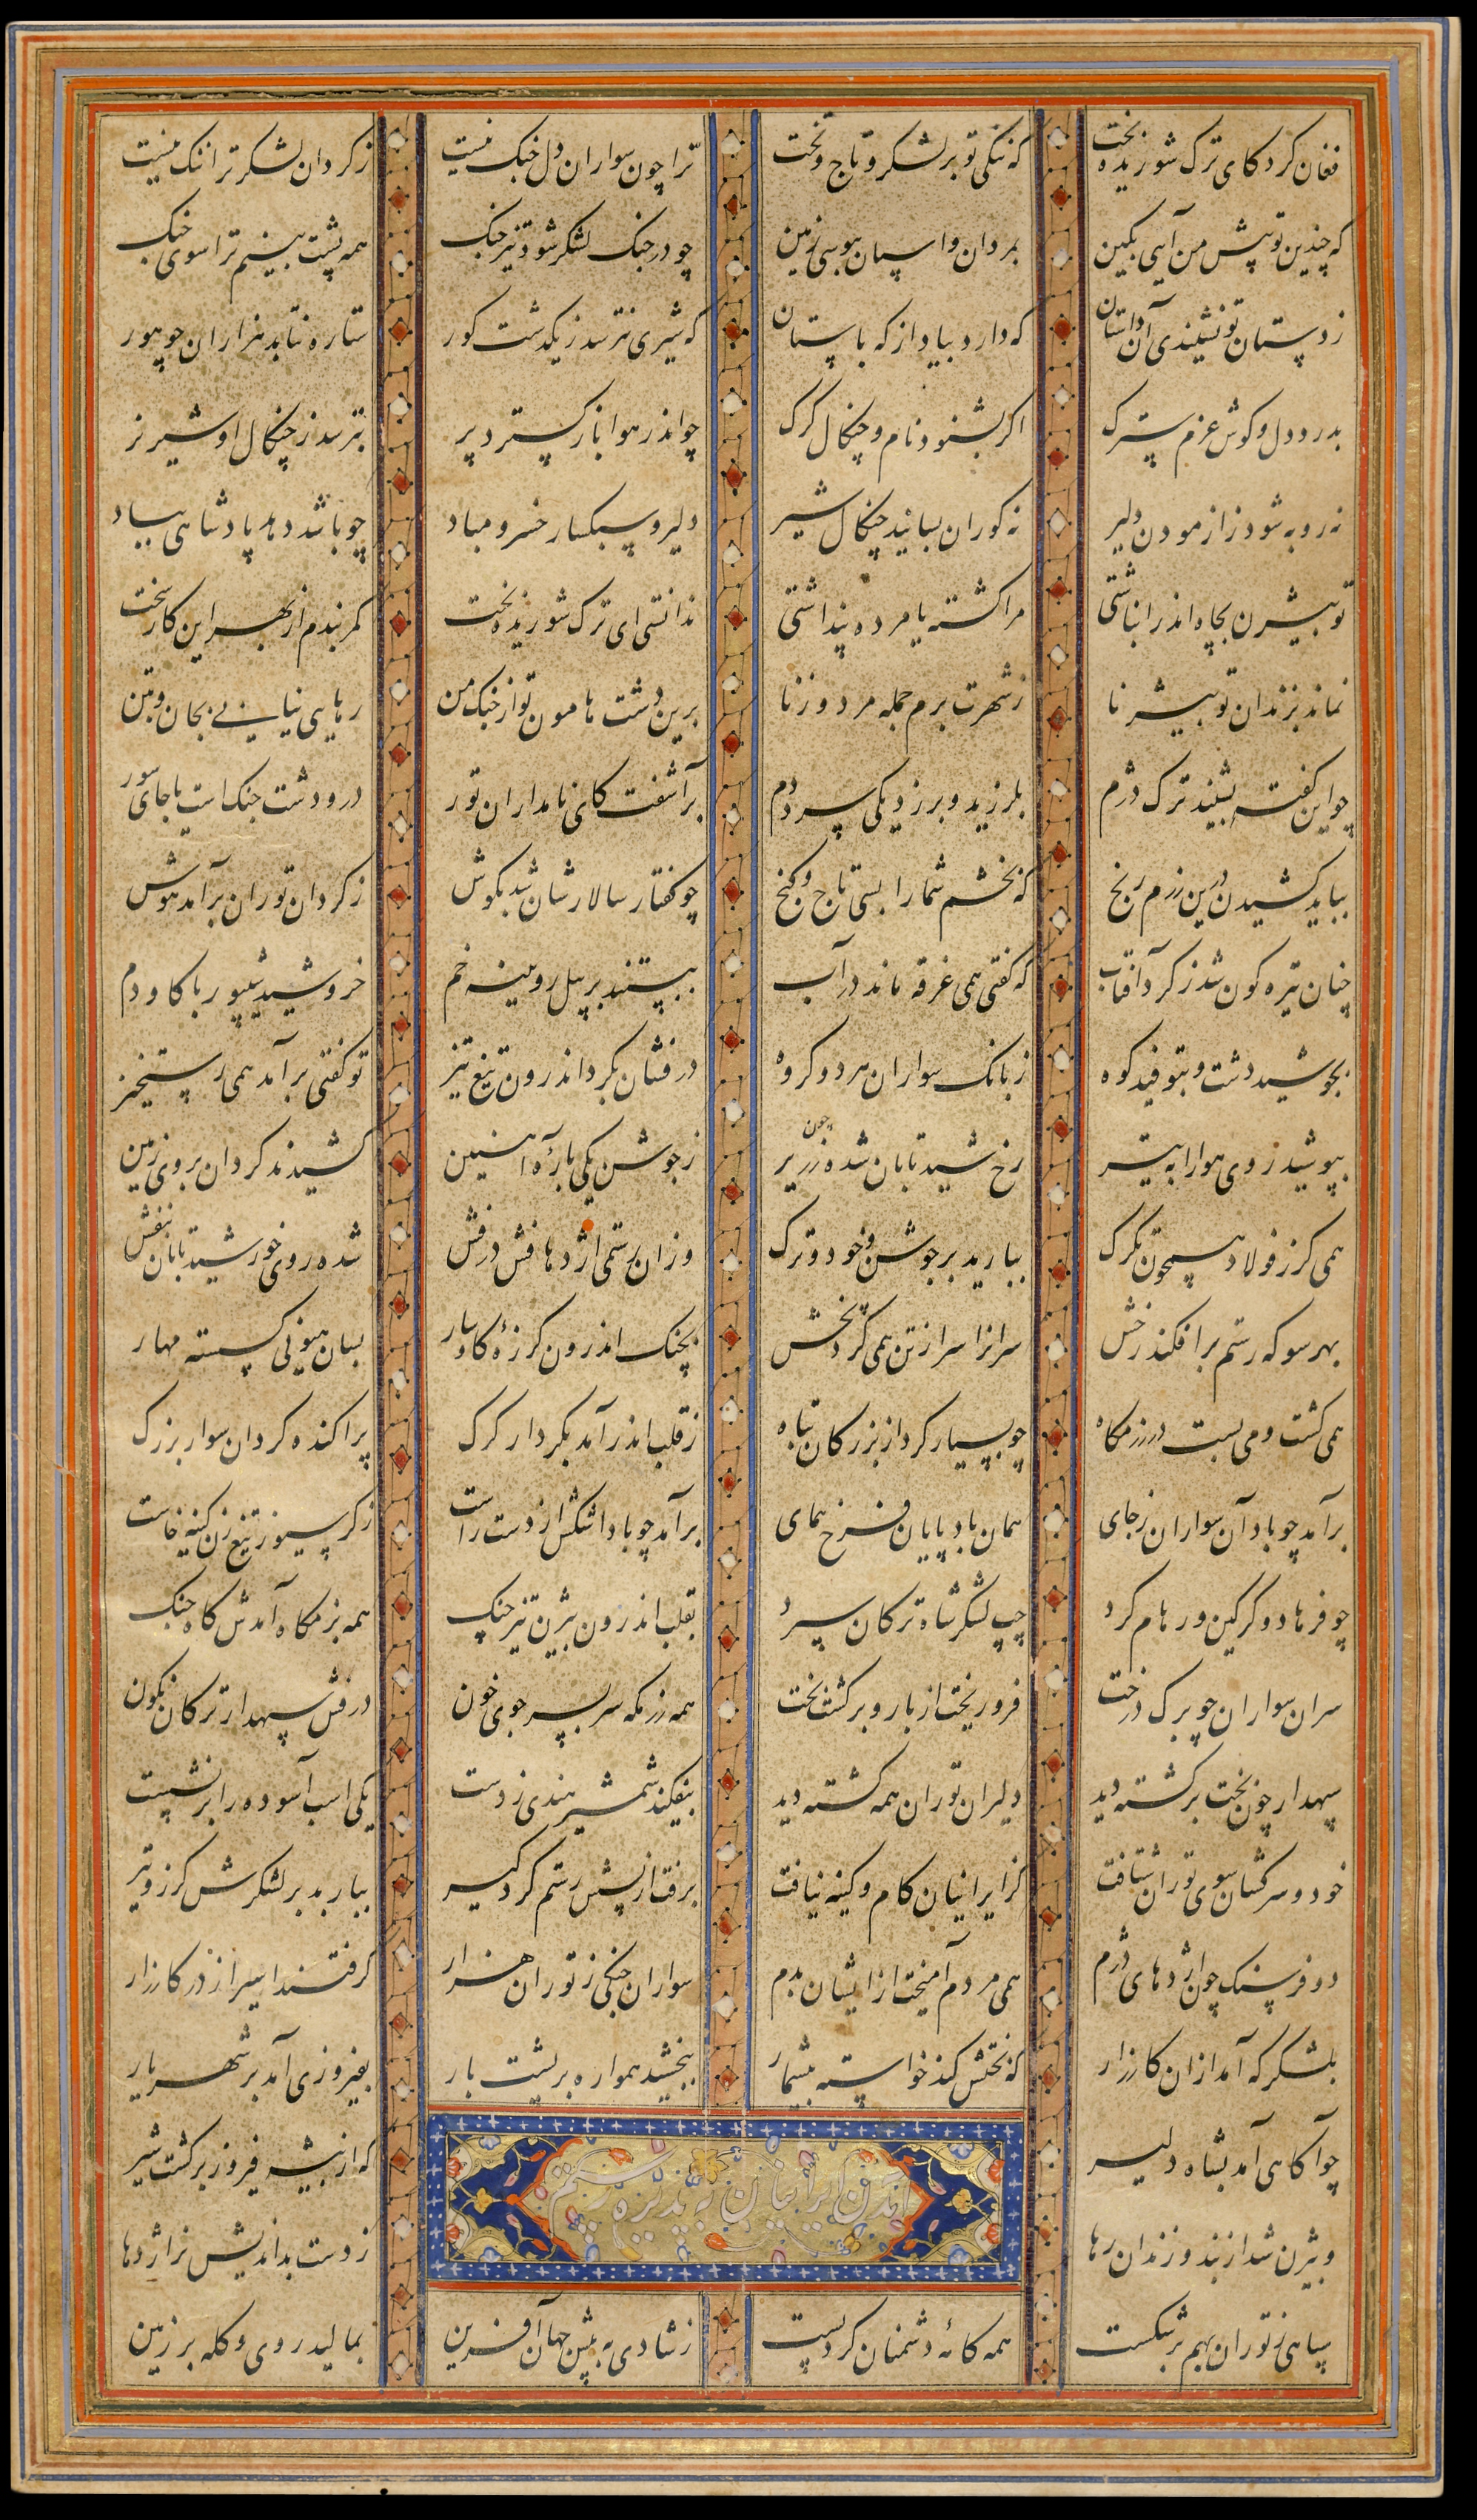 فغان کرد کای ترک شوریده بخت که ننگی تو بر لشکر و تاج و تخت ترا چون سواران دل جنگ نیست ز گردان لشکر ترا ننگ نیست
که چندین تو پیش من آیی بکین بمردان و اسپان بپوسی زمین چو در جنگ لشکر شود تیز جنگ همه پشت بینم ترا سوی جنگ
ز دستان تو نشنیدی آن داستان که دارد بیاد از که باستان که شیری نترسد ز یکدشت گور ستاره نتابد هزاران چو هور
بدرد دل و گوش غرم سترگ اگر بشنود نام و چنگال گرگ چو اندر هوا باز گسترد پر بترسد ز چنگال او شیر نر
نه روبه شود ز ازمودن دلیر نه گوران بسایند چنگال شیر دلیر و سبکسار خسرو مباد چو باشد دهد پادشاهی بباد
تو بیژن بچاه اندر انباشتی مرا کشته یا مرده پنداشتی ندانستی ای ترک شوریده بخت کمر بندم از بهر این کار سخت
نماند بزندان تو بیژنا ز شهرت برم جمله مرد و زنا برین دشت هامون تو از جنگ من رهایی نیابی بجان و بتن
چو این گفته بشنید ترک دژم بلرزید و برزد یکی سرد دم برآشفت کای نامداران تور درو دشت جنگ است یا جای سور
بباید کشیدن درین رزم رنج که بخشم شما را بسی تاج و گنج چو گفتار سالارشان شد بگوش ز گردان توران برآمد خروش
چنان تیره گون شد ز گرد آفتاب که گفتی همی غرقه ماند در آب ببستند بر پیل رویینه خم خروشید شیپور با گاودم
بجوشید دشت و بتوفید کوه ز بانگ سواران هر دو گروه درفشان بگرد اندرون تیغ تیز تو گفتی برآمد همی رستخیز
بپوشید روی هوا را به تیر رخ شید تابان شده چون زریر ز جوشن یکی باره آهنین کشیدند گردان بروی زمین
همی گرز فولاد همچون تگرگ ببارید بر جوشن و خود و ترگ وزان رستمی اژدهافش درفش شده روی خورشید تابان بنفش
بهر سو که رستم برافکند رخش سرانرا سر از تن همی کرد بخش بچنگ اندرون گرزه گاوسار بسان هیونی گسسته مهار
همی کشت و می بست در رزمگاه چو بسیار کرد از بزرگان تباه ز قلب اندر آمد بکردار گرگ پراکنده گردان سوار بزرگ
برآمد چو باد آن سواران ز جای همان بادپایان فرخ همای برآمد چو باد اشکش از دست راست ز گرسیوز تیغ زن کینه خاست
چو فرهاد و گرگین و رهام گرد چپ لشکر شاه ترکان سپرد بقلب اندرون بیژن تیز چنگ همه بزمگاه آمدش گاه جنگ
سران سواران چو برگ درخت فرو ریخت از بار و برگشت بخت همه رزمگه سربسر جوی خون درفش سپهدار ترکان نگون
سپهدار چون بخت برگشته دید دلیران توران همه کشته دید بیفکند شمشیر هندی ز دست یکی اسب آسوده را برنشست
خود و سرکشان سوی توران شتافت کز ایرانیان کام و کینه نیافت برفت از پسش رستم گردگیر ببارید بر لشکرش گرز و تیر
دو فرسنگ چون اژدهای دژم همی مردم آمیخت از ایشان بدم سواران جنگی ز توران هزار گرفتند اسیر از در کارزار
بلشکرگه آمد ازان کارزار که بخشش کند خواسته بیشمار ببخشید همواره بر پشت بار بفیروزی آمد بر شهریار
چو آگاهی آمد بشاه دلیر که از بیشه فیروز برگشت شیر
آمدن ایرانیان به پذیره رستم
و بیژن شد از بند و زندان رها ز دست بداندیش نر اژدها
سپاهی ز توران بهم برشکست همه کامه دشمنان کرد پست ز شادی به پیش جهان آفرین بمالید روی و کله بر زمین